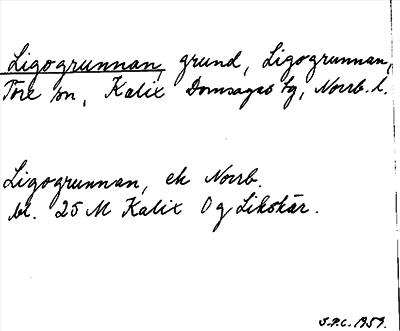 Ligogrunnan, grund, Ligogrunnan,
Töre sn, Kalix Domsagas tg, Norrb. l.
Ligogrunnan, ek Norrb.
bl. 25 M Kalix Og Likskär.
S.P.C. 1959.